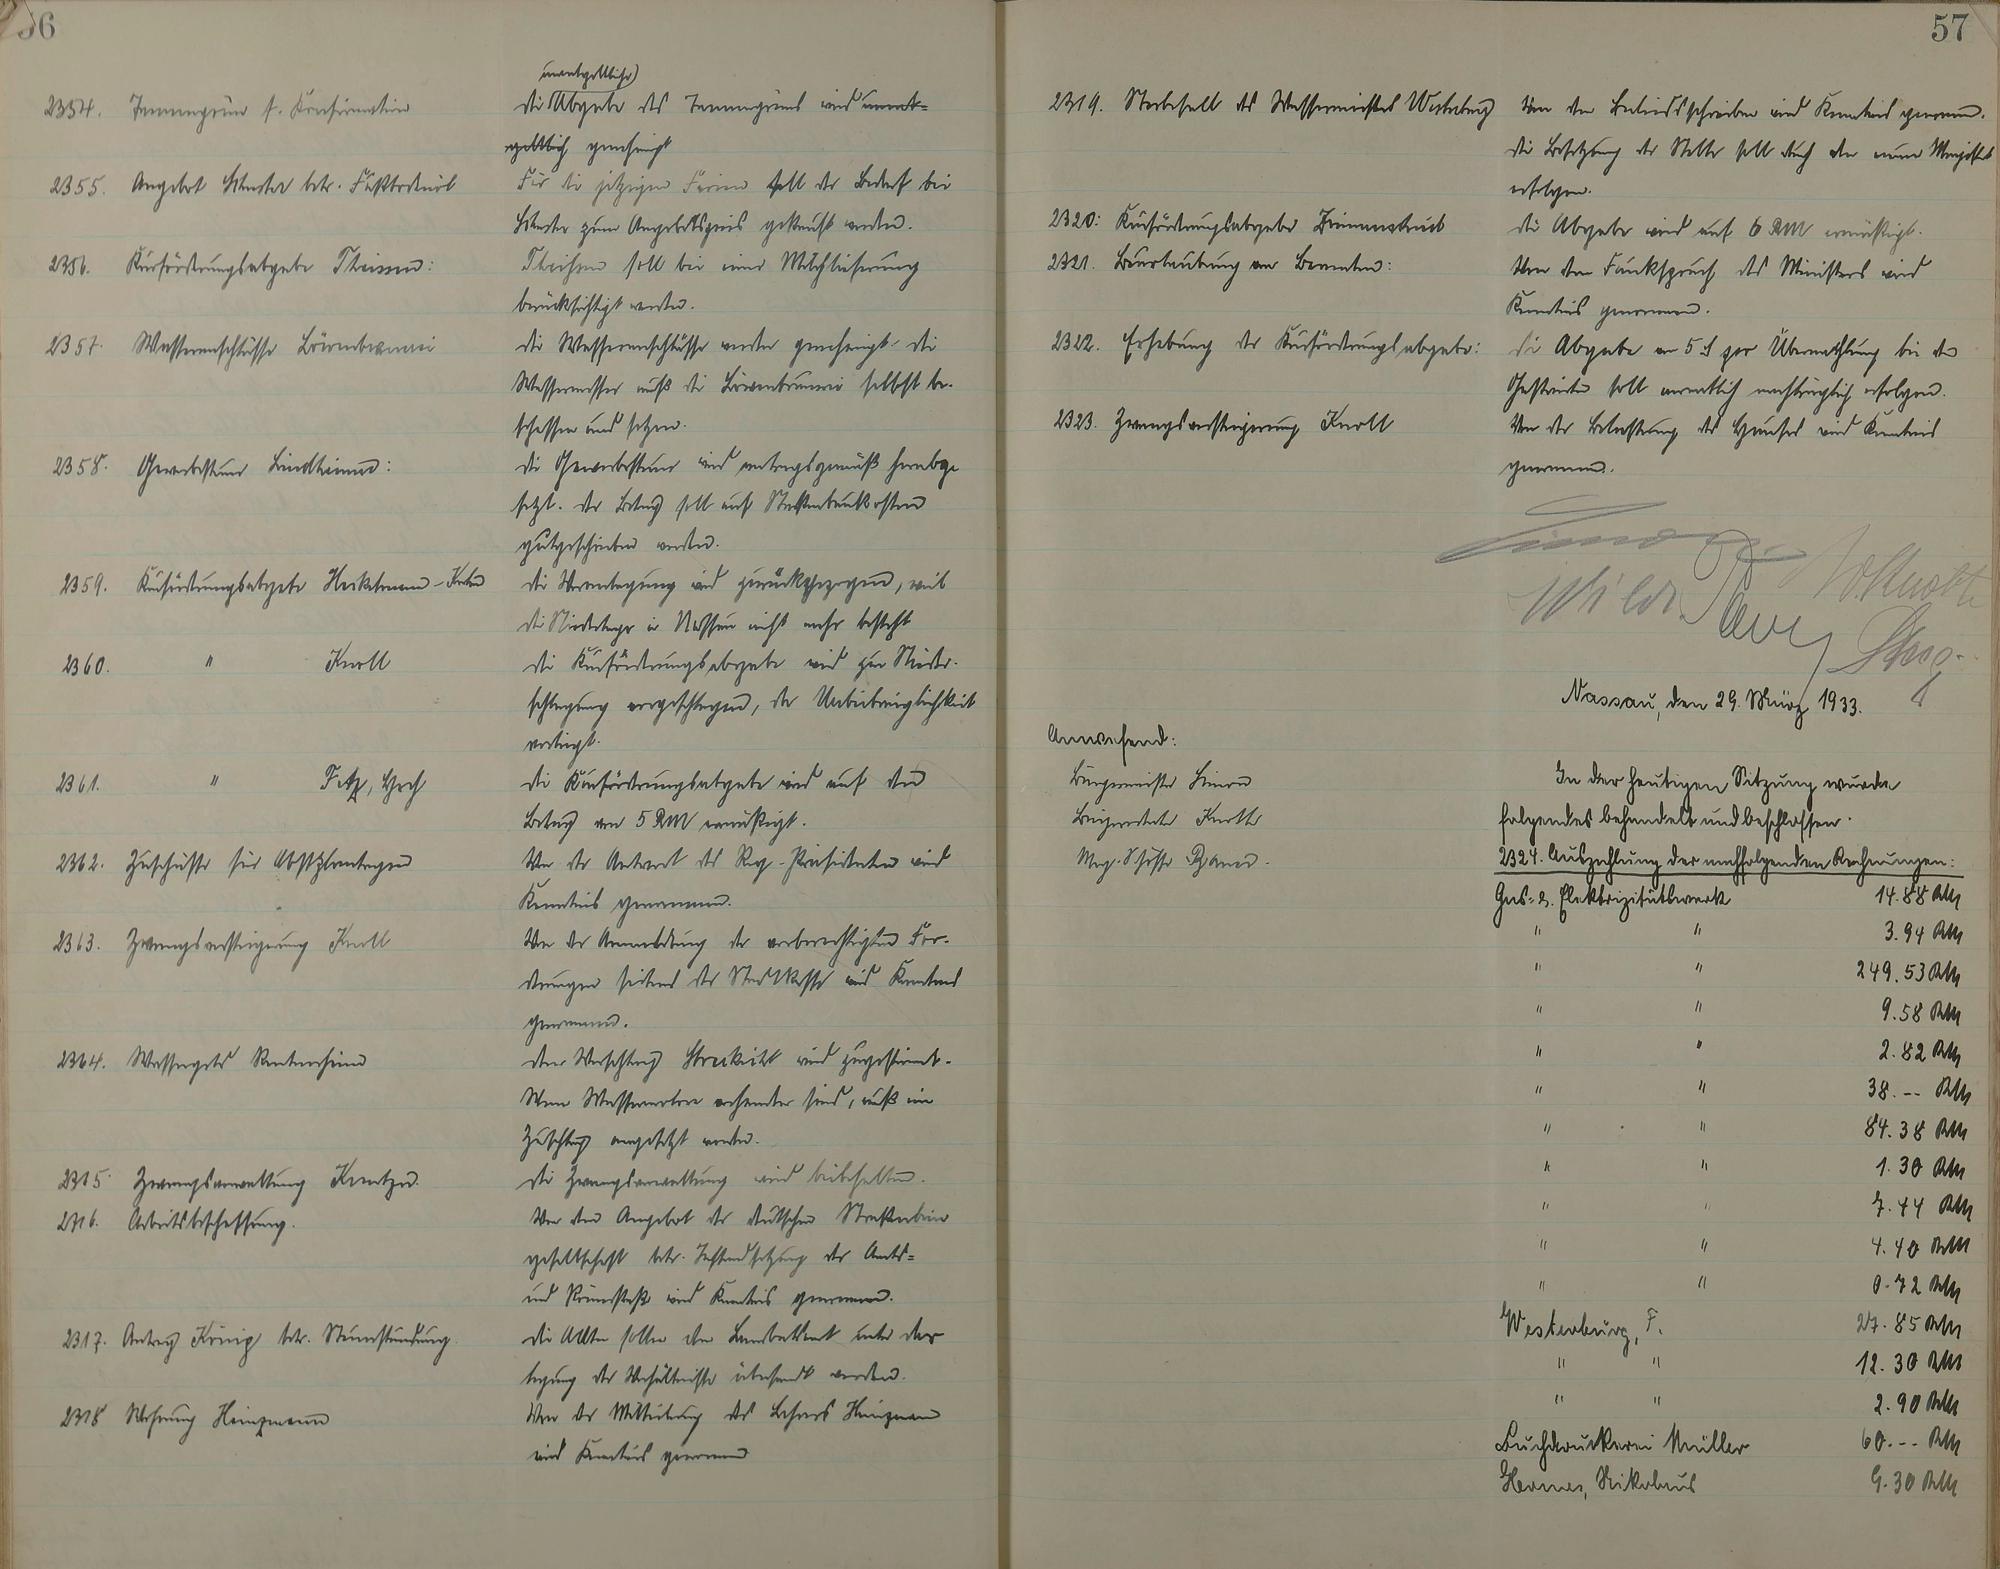 56
unentgeltliche
2354. Tannengrün f. Konfirmation
die Abgabe des Tannengrüns wird unent=
geltlich genehmigt
2355. Angebot betr.
Für die jetzigen soll der Bedarf bei
zum Angebotspreis gekauft werden.
2356. Kurförderungsabgabe Theisen:
Theisen soll bei einer Milchlieferung
berücksichtigt werden.
2357. Wasseranschlüsse Löwenbrauerei
die Wasseranschlüsse werden genehmigt. die
Wassermesser muß die Löwenbrauerei selbst be-
schaffen und setzen.
2358. Gewerbesteuer Bindheimer:
die Gewerbesteuer wird antragsgemäß herabge
setzt. der Betrag soll auf Straßenbaukosten
gutgeschrieben werden.
2359. Kurförderungsabgabe
die Veranlagung wird zurückgezogen, weil
die Niederlage in Nassau nicht mehr besteht
2360. " Knoll
die Kurförderungsabgabe wird zur Nieder-
schlagung vorgeschlagen, da Unbeibringlichkeit
vorliegt.
2361. "
die Kurförderungsabgabe wird auf den
Betrag von 5 RM ermäßigt.
2362. Zuschüsse für
Von der Antwort des Reg.-Präsidenten wird
Kenntnis genommen.
2363. Zwangsversteigerung Knoll
Von der Anmeldung der bevorrechtigten For-
derungen seitens der Stadtkasse wird Kenntnis
genommen.
2364. Wassergeld
dem Vorschlag wird zugestimmt.
Wenn vorhanden sind, muß ein
Zuschlag angesetzt werden.
2315. Zwangsverwaltung
die Zwangsverwaltung wird beibehalten.
2316. Arbeitsbeschaffung.
Von dem Angebot der deutschen Straßenbau
gesellschaft betr. Instandsetzung der Amts=
und wird Kenntnis genommen.
2317. Antrag König betr. Steuerstundung.
die Akten sollen dem unter Dar
legung der Verhältnisse übersandt werden.
2318 Wohnung Heinzmann
Von der Mitteilung des Lehrers Heinzmann
wird Kenntnis genommen
57
2319. Sterbefall des Wassermeisters Westerburg
Von dem Beileidsschreiben wird Kenntnis genommen.
die Besetzung der Stelle soll durch den neuen Magistrat
erfolgen.
2320: Kurförderungsabgabe
die Abgabe wird auf 6 RM ermäßigt.
2321. Beurlaubung von Beamten:
Von dem Funkspruch des Ministers wird
Kenntnis genommen.
2322. Erhebung der Kurförderungsabgabe:
die Abgabe von 5 pro Übernachtung bei den
Gastwirten soll monatlich nachträglich erfolgen.
2323. Zwangsversteigerung Knoll
Von der Belastung des Hauses wird Kenntnis
genommen.
Nassau, den 29. März 1933.
Anwesend:
Bürgermeister
Beigeordneter
Mag. Schöffe
In der heutigen Sitzung wurde
folgendes behandelt und beschlossen.
2324. Auszahlung der nachfolgenden Rechnungen:
Gas- u. Elektrizitätswerk 14.88 RM
" " 3.94 RM
" " 249.53 RM
" " 9.58 RM
" " 2.82 RM
" " 38.-- RM
" " 84.38 RM
" " 1.30 RM
" " 7.44 RM
" " 4.40 RM
" " 0.72 RM
Westerburg, F. 27.85 RM
" " 12.30 RM
" " 2.90 RM
Buchdruckerei Müller 60.-- RM
Hermes, Nikolaus 9.30 RM